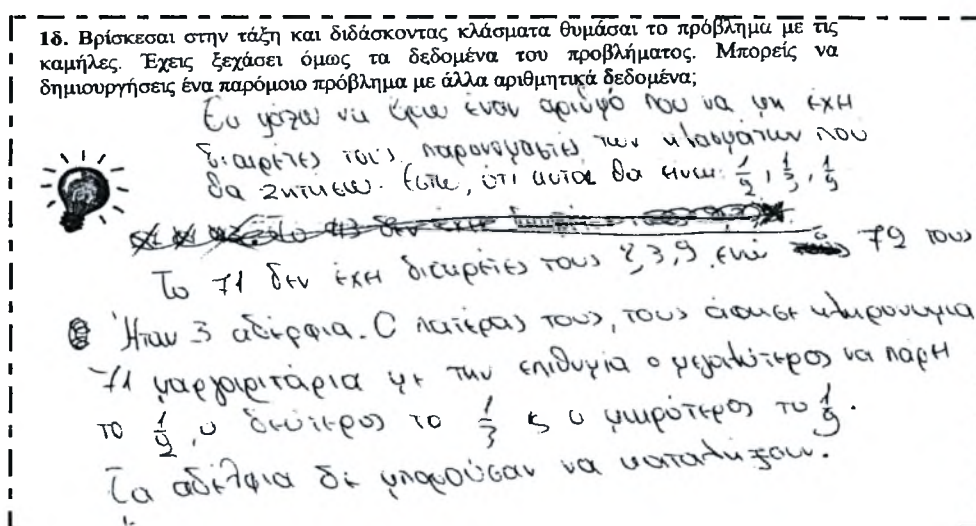 1δ. Βρίσκεσαι στην τάξη και διδάσκοντας κλάσματα θυμάσαι το πρόβλημα με τις
καμήλες. Έχεις ξεχάσει όμως τα δεδομένα του προβλήματος. Μπορείς να
δημιουργήσεις ένα παρόμοιο πρόβλημα με άλλα αριθμητικά δεδομένα;
Εγώ ψάχνω να βρω έναν αριθμό που να μη έχει
διαιρέτες τους παρονομαστές των κλασμάτων που
θα ζητήσω. Έστω, ότι αυτοί θα είναι 1/2, 1/3, 1/9
Το 71 δεν έχει διαιρέτες τους 2,3,9 ενώ ο 72 τους
Ήταν 3 αδέρφια. Ο πατέρας τους, τους άφησε κληρονομιά
71 μαργαριτάρια με την επιθυμία ο μεγαλύτερος να πάρει
το 1/2, ο δεύτερος το 1/3 ς ο μικρότερος το 1/9.
Τα αδέλφια δε μπορούσαν να καταλήξουν.